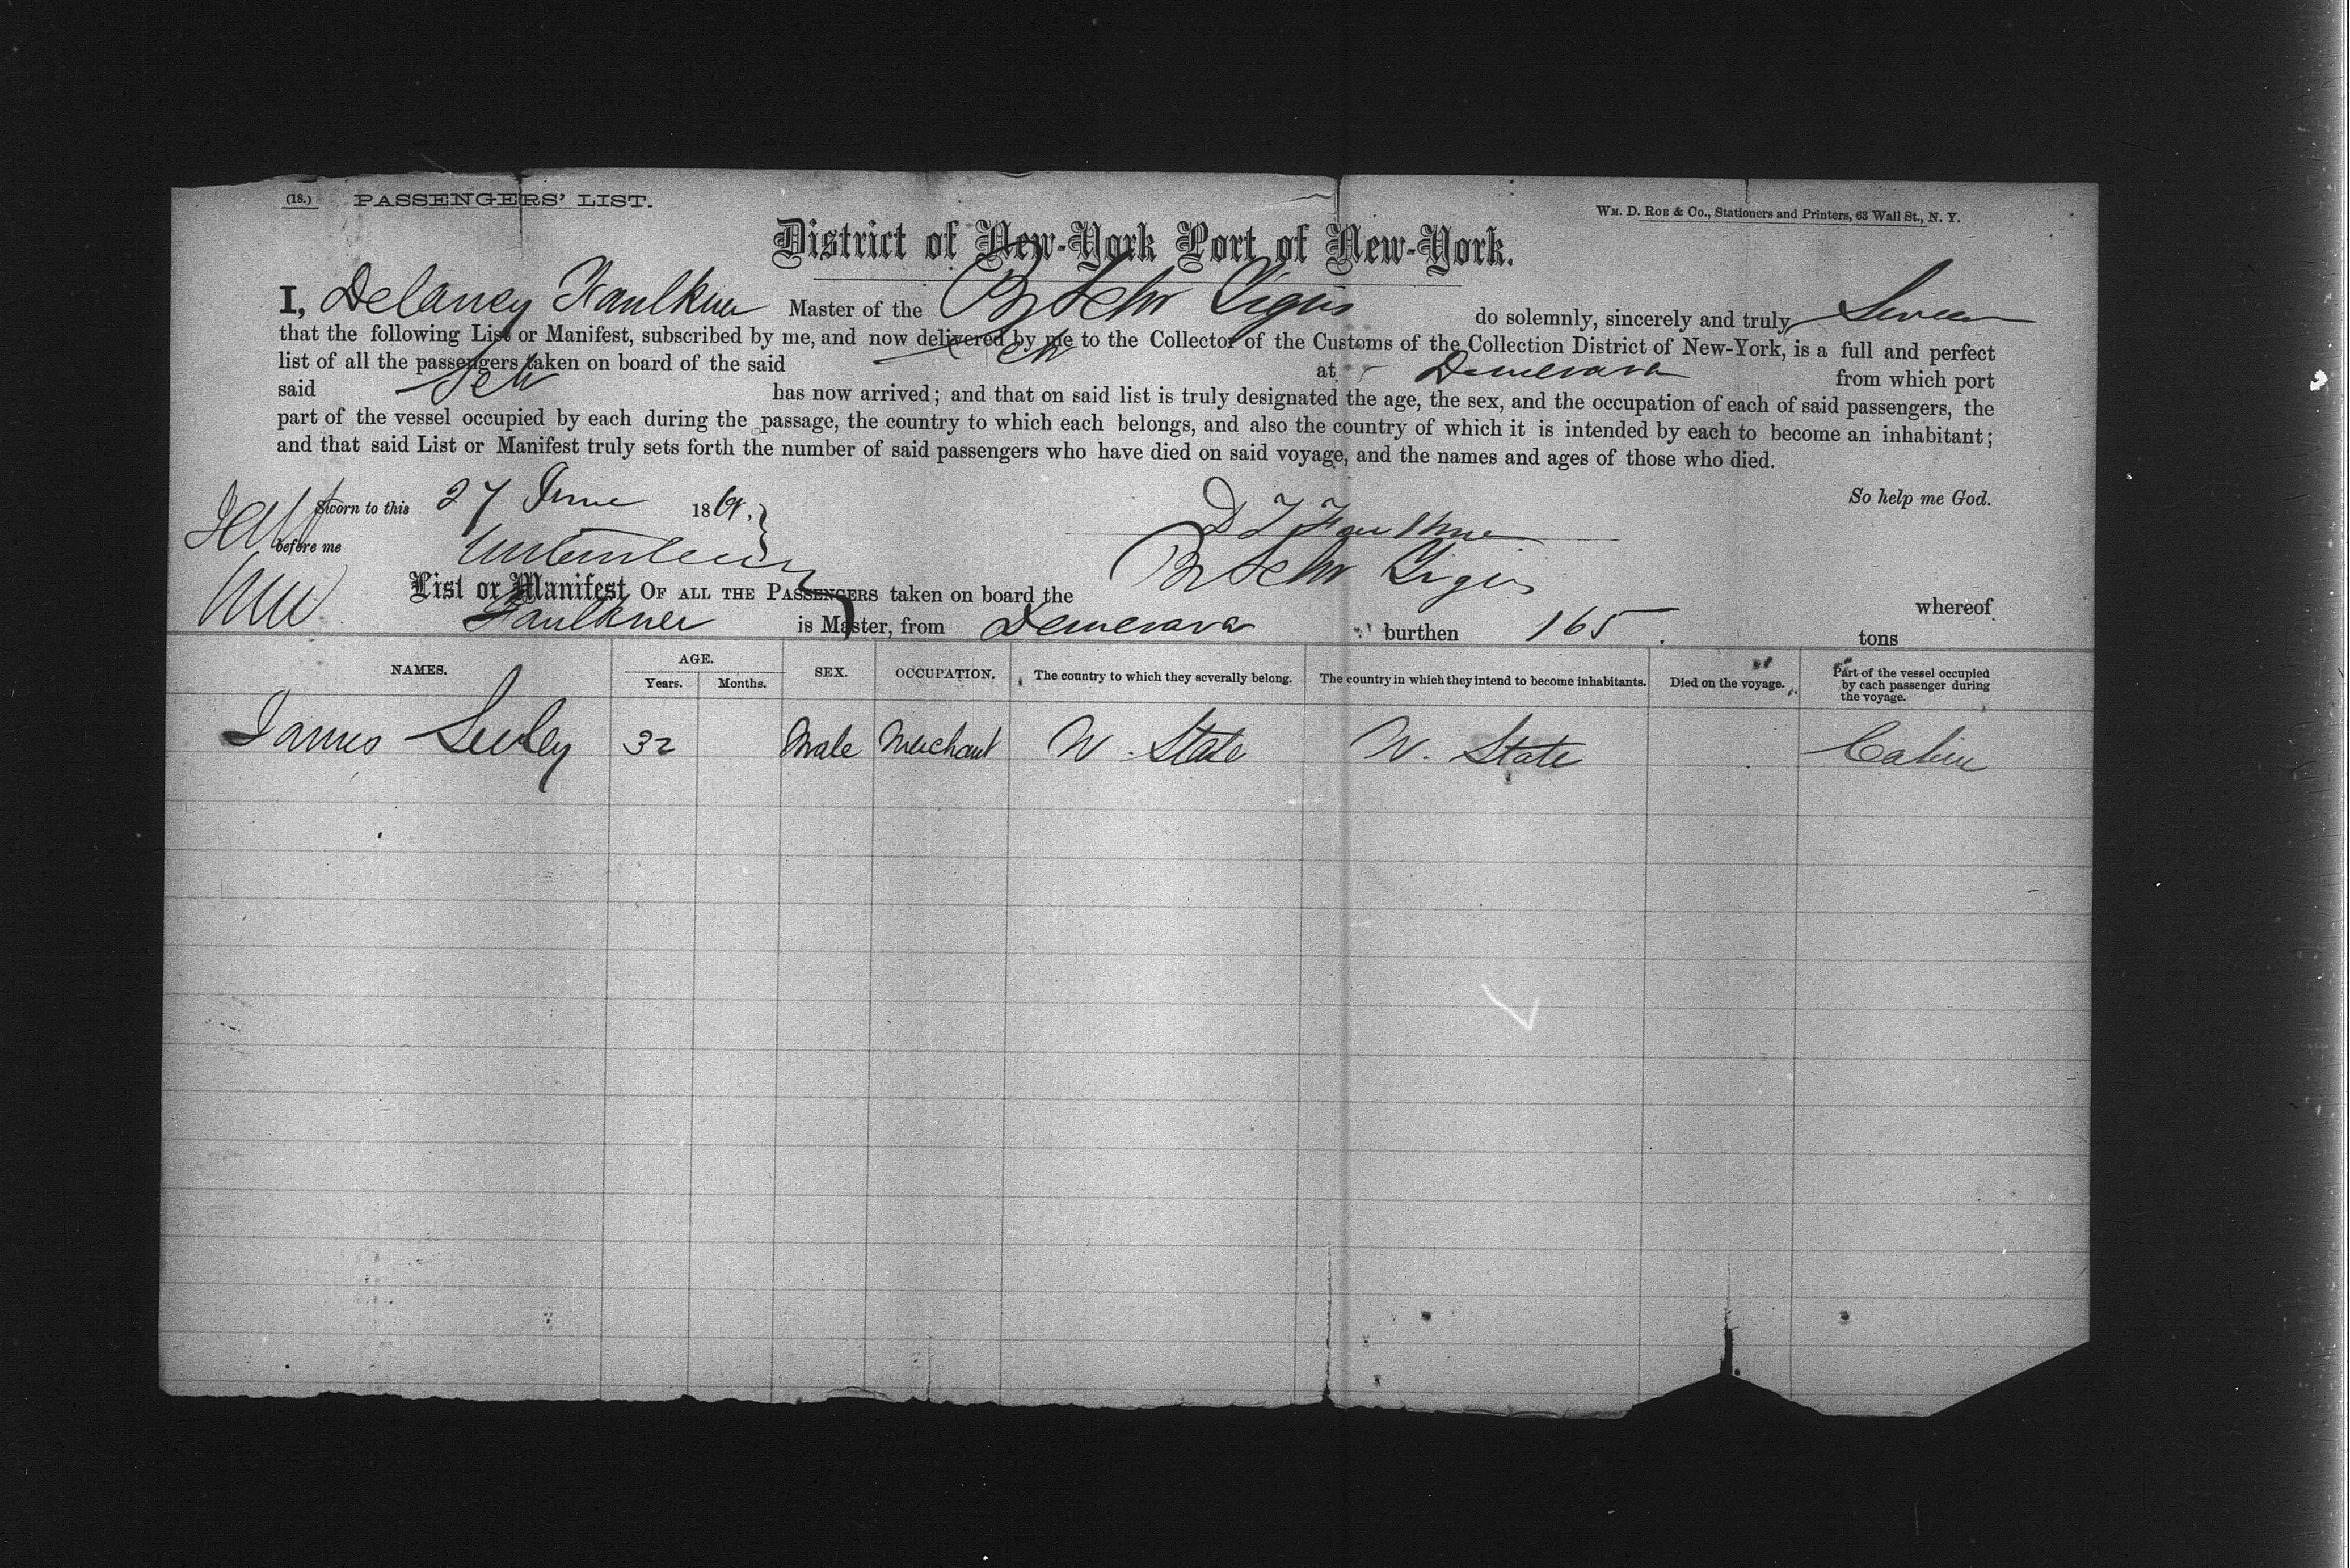 (18.) PASSENGERS' LIST.
WM. D. ROE & Co., Stationers and Printers, 63 Wall St., N. Y.
District of New-York Port of New-York.
I, Delaney Faulkner Master of the Br Schr do solemnly, sincerely and truly
that the following List or Manifest, subscribed by me, and now delivered by me to the Collector of the Customs of the Collection District of New-York, is a full and perfect
list of all the passengers taken on board of the said Sch at Demerara from which port
said Sch has now arrived; and that on said list is truly designated the age, the sex, and the occupation of each of said passengers, the
part of the vessel occupied by each during the passage, the country to which each belongs, and also the country of which it is intended by each to become an inhabitant;
and that said List or Manifest truly sets forth the number of said passengers who have died on said voyage, and the names and ages of those who died.
So help me God.
Sworn to this 27 June 1869.
D T Faulkner
before me
List or Manifest OF ALL THE PASSENGERS taken on board the Br Schr whereof
Faulkner is Master, from Demerara burthen 165 tons
NAMES. AGE. Years. Months. SEX. OCCUPATION. The country to which they severally belong. The country in which they intend to become inhabitants. Died on the voyage. Part of the vessel occupied by each passenger during the voyage.
James 32 Male Merchant State State Cabin